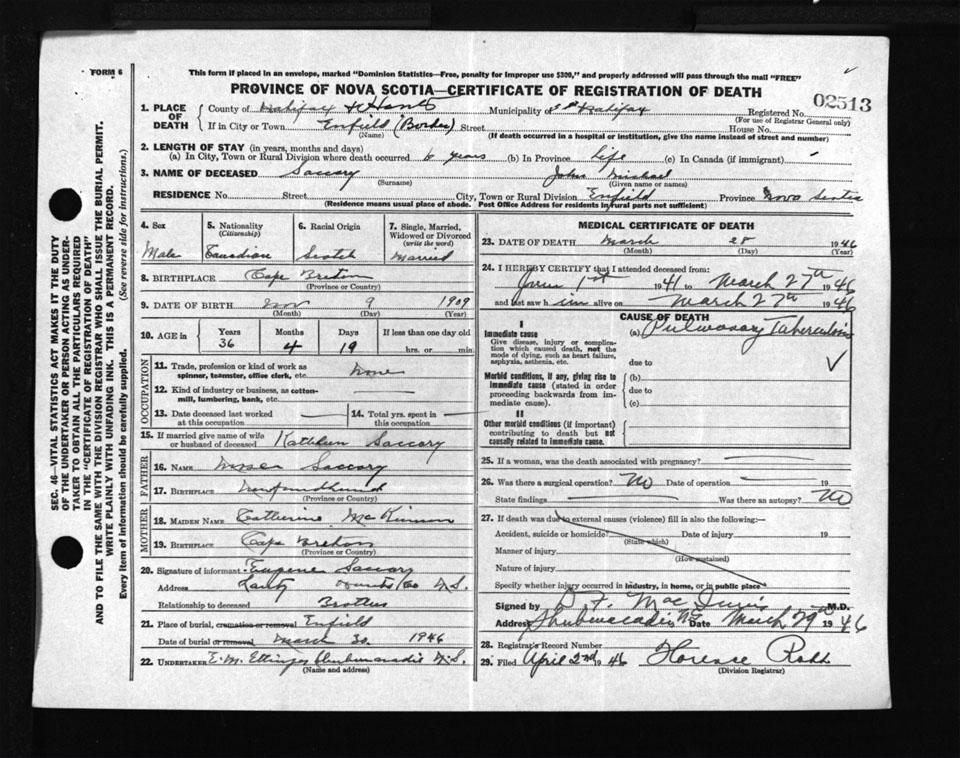 FORM 6
This form if placed in an envelope, marked "Dominion Statistics—Free, penalty for improper use $300," and properly addressed will pass through the mail "FREE"
PROVINCE OF NOVA SCOTIA—CERTIFICATE OF REGISTRATION OF DEATH
02513
1. PLACE OF DEATH
County of Halifax & Hants Municipality of Halifax Registered No.
(For use of Registrar General only)
If in City or Town Enfield (Border) Street House No.
(Name) (If death occurred in a hospital or institution, give the name instead of street and number)
2. LENGTH OF STAY (in years, months and days)
(a) In City, Town or Rural Division where death occurred 6 years (b) In Province Life (c) In Canada (if immigrant)
3. NAME OF DECEASED Saccary John Michael
(Surname) (Given name or names)
RESIDENCE No. Street City, Town or Rural Division Enfield Province Nova Scotia
(Residence means usual place of abode. Post Office Address for residents in rural parts not sufficient)
4. Sex
Male
5. Nationality
(Citizenship)
Canadian
6. Racial Origin
Scotch
7. Single, Married, Widowed or Divorced
(write the word)
Married
8. BIRTHPLACE Cape Breton
(Province or Country)
9. DATE OF BIRTH Nov 9 1909
(Month) (Day) (Year)
10. AGE in
Years Months Days If less than one day old
36 4 19 hrs. or min.
OCCUPATION
11. Trade, profession or kind of work as spinner, teamster, office clerk, etc. None
12. Kind of industry or business, as cotton-mill, lumbering, bank, etc.
13. Date deceased last worked at this occupation
14. Total yrs. spent in this occupation
15. If married give name of wife or husband of deceased Kathleen Saccary
FATHER
16. NAME Moses Saccary
17. BIRTHPLACE Newfoundland
(Province or Country)
MOTHER
18. MAIDEN NAME Catherine McKinnon
19. BIRTHPLACE Cape Breton
(Province or Country)
20. Signature of informant Eugene Saccary
Address Lantz Hants Co N.S.
Relationship to deceased Brother
21. Place of burial, cremation or removal Enfield
Date of burial or removal March 30. 1946
22. UNDERTAKER E. M. Ettinger Shubenacadie N.S.
(Name and address)
MEDICAL CERTIFICATE OF DEATH
23. DATE OF DEATH March 28 1946
(Month) (Day) (Year)
24. I HEREBY CERTIFY that I attended deceased from:
1st 1941 to March 27th 1946
and last saw him alive on March 27th 1946
CAUSE OF DEATH
I
Immediate cause
Give disease, injury or complication which caused death, not the mode of dying, such as heart failure, asphyxia, asthenia, etc.
(a) Pulmonary Tuberculosis
due to
Morbid conditions, if any, giving rise to immediate cause (stated in order proceeding backwards from immediate cause).
(b)
due to
(c)
II
Other morbid conditions (if important) contributing to death but not causally related to immediate cause.
25. If a woman, was the death associated with pregnancy?
26. Was there a surgical operation? No Date of operation 19
State findings Was there an autopsy? No
27. If death was due to external causes (violence) fill in also the following:—
Accident, suicide or homicide? Date of injury 19
(State which)
Manner of injury
(How sustained)
Nature of injury
Specify whether injury occurred in industry, in home, or in public place
Signed by D. F. Mac M.D.
Address Shubenacadie NS Date March 29 1946
28. Registrar's Record Number
29. Filed April 2nd 1946 Florence
(Division Registrar)
SEC. 46—VITAL STATISTICS ACT MAKES IT THE DUTY
OF THE UNDERTAKER OR PERSON ACTING AS UNDERTAKER TO OBTAIN ALL THE PARTICULARS REQUIRED
IN THE "CERTIFICATE OF REGISTRATION OF DEATH"
AND TO FILE THE SAME WITH THE DIVISION REGISTRAR WHO SHALL ISSUE THE BURIAL PERMIT.
WRITE PLAINLY WITH UNFADING INK. THIS IS A PERMANENT RECORD.
Every item of information should be carefully supplied. (See reverse side for instructions.)